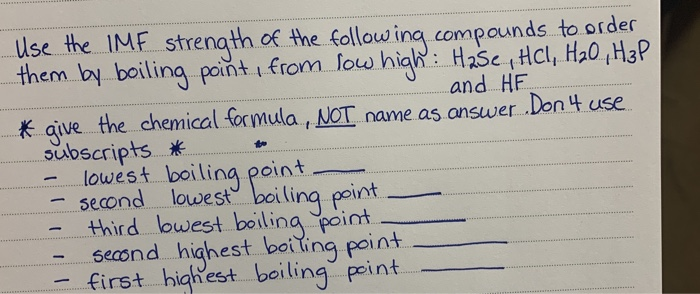 Use the IMF strength of the following compounds to order
them by boiling point, from low high: H2Se, HCl, H2O, H3P
and HF
* give the chemical formula, NOT name as answer. Don4 use
subscripts *
- lowest boiling point
- second lowest boiling point
- third lowest boiling point
- second highest boiling point
- first highest boiling point